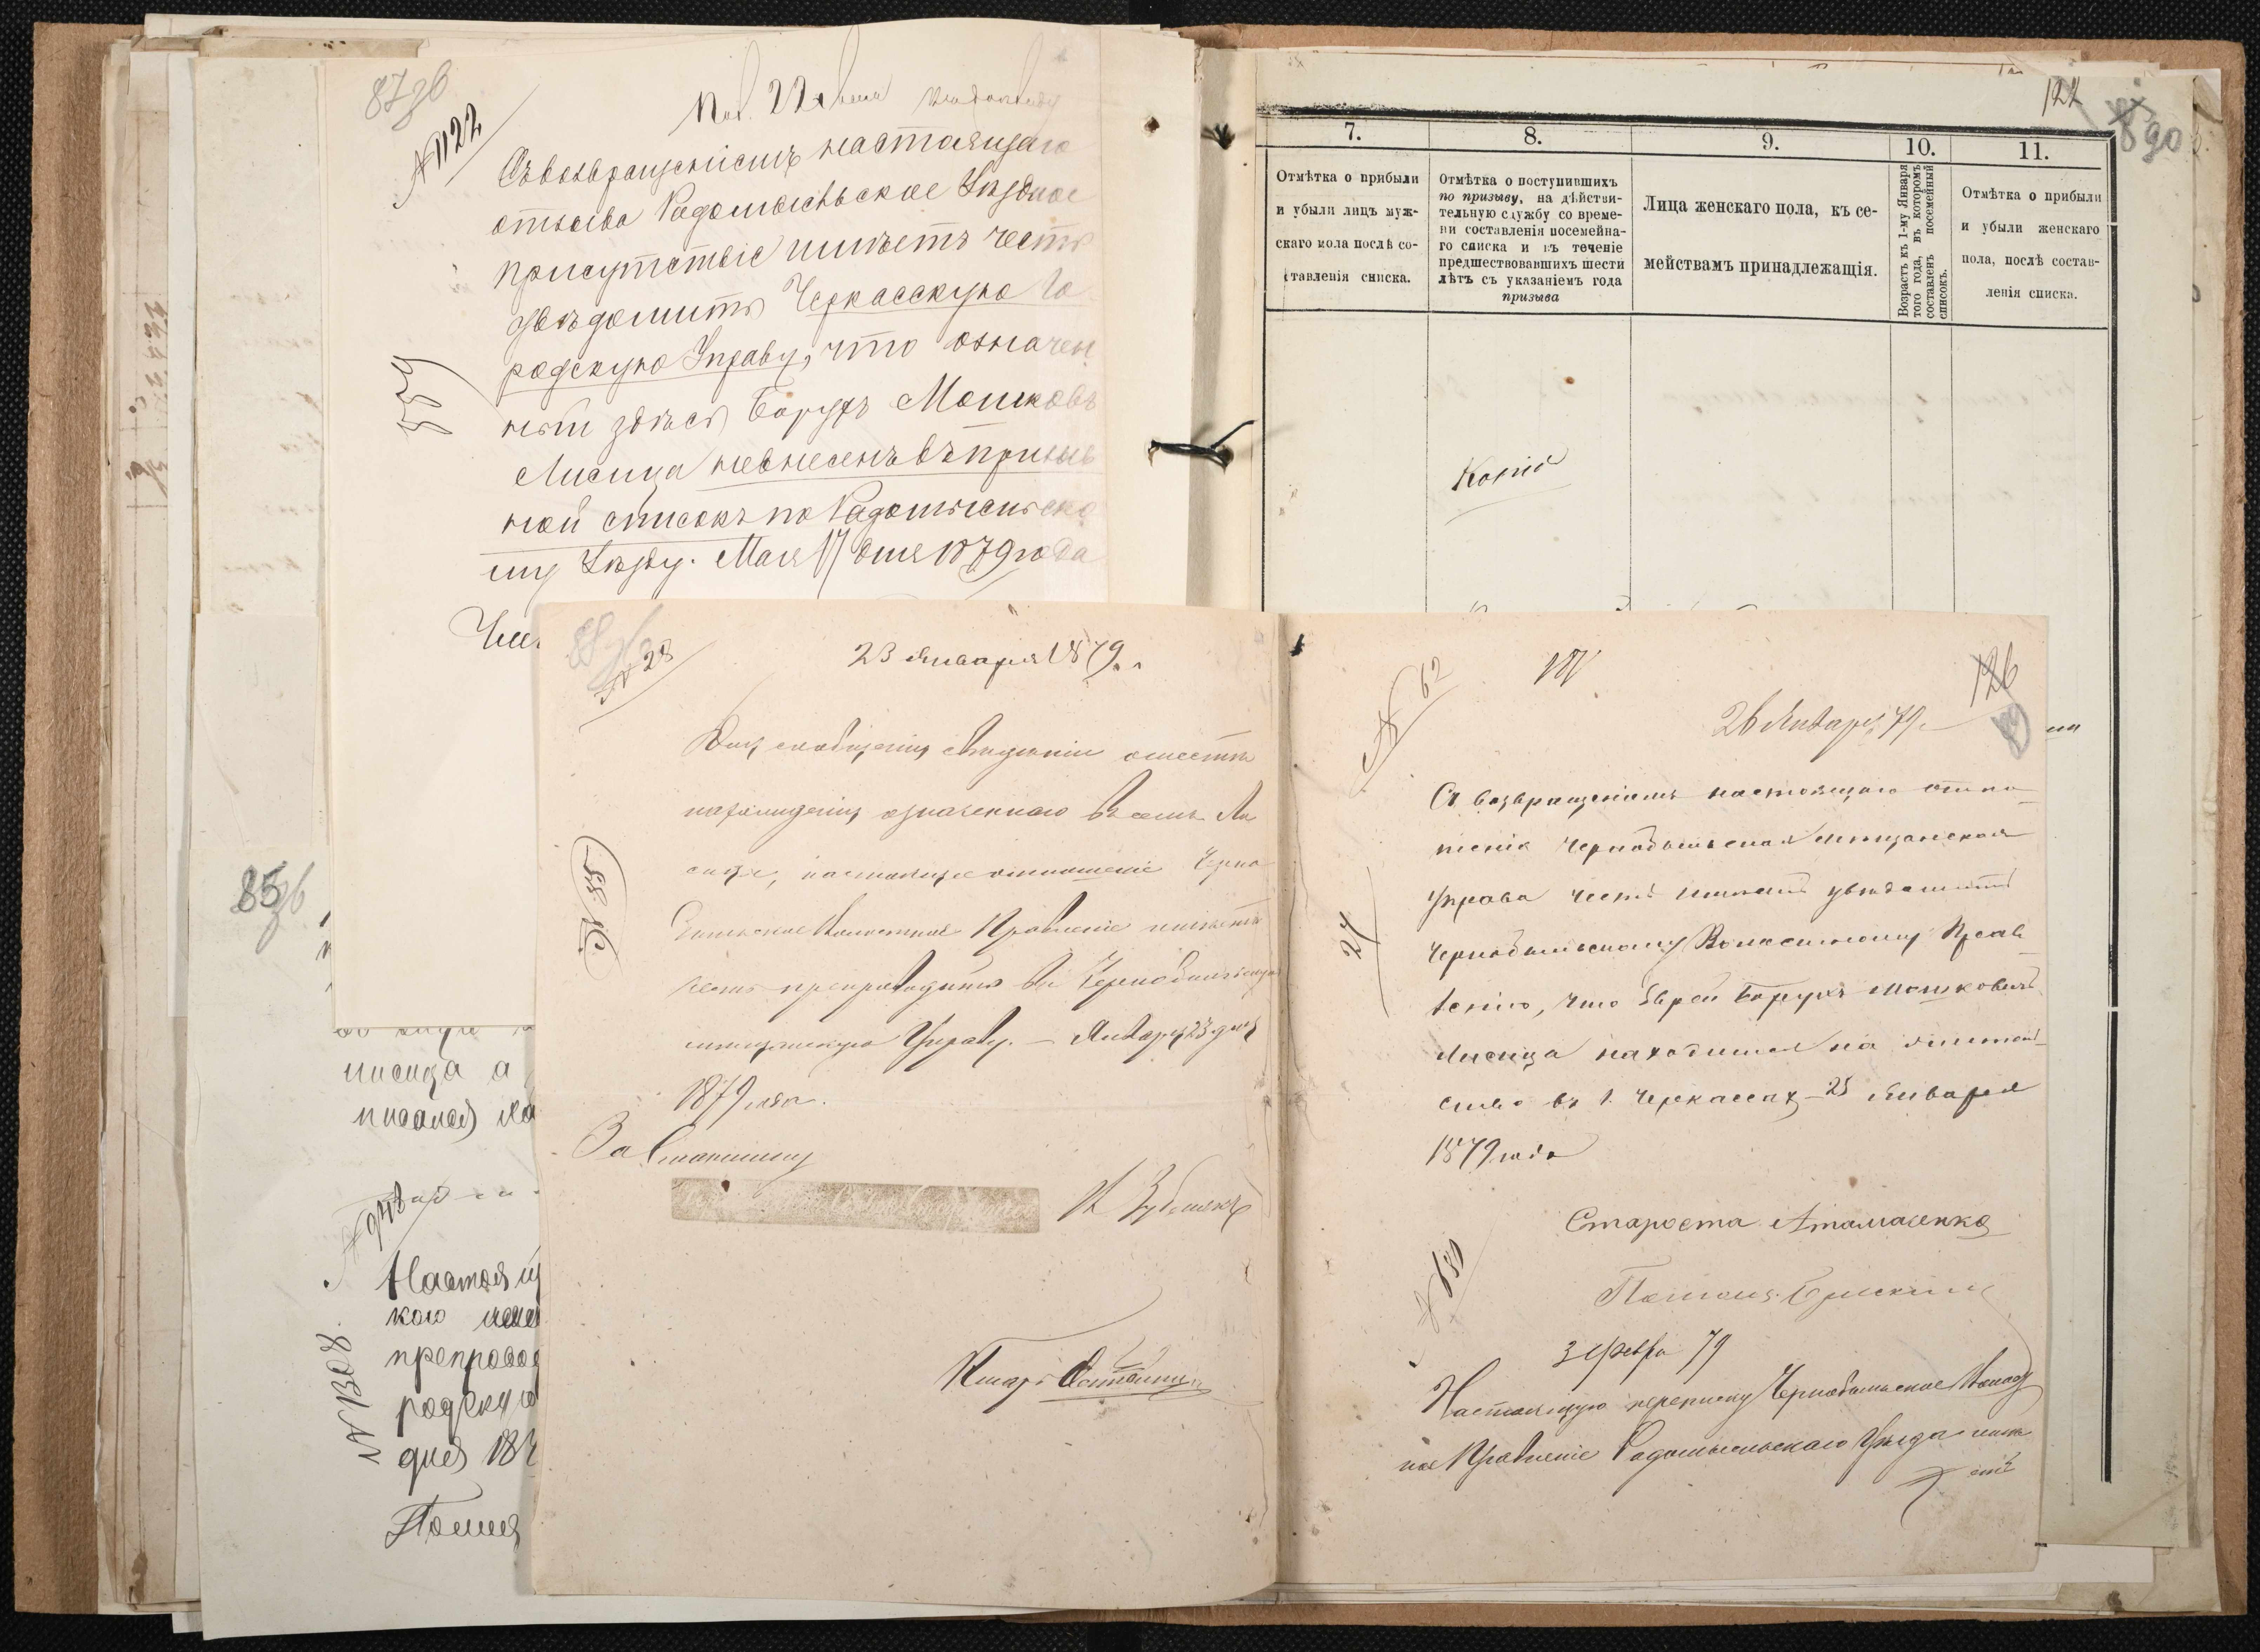 87 об
№ 1122
Пол. 22 Мая
Съ возвращеніемъ настоящаго
отзыва Радомысльское Уѣздное
присутствіе имѣетъ честь
увѣдомить Черкасскую Го
родскую Управу, что означен
ный здѣсь Борухъ Мошковъ
Лисица невнесенъ въ призыв
ной списокъ по Радомысльско
му Уѣзду. Мая 17 дня 1879 года
559
Чле
85 об
лисица а
писался
№ 948
Настоящ
кого
препровод
родскую
дня 187
№ 1308
Помощ
122
90
7.
8.
9.
10.
11.
Отмѣтка о прибыли
и убыли лицъ муж-
скаго пола послѣ со-
ставленія списка.
Отмѣтка о поступившихъ
по призыву, на дѣйстви-
тельную службу со време-
ни составленія посемейна-
го списка и въ теченіе
предшествовавшихъ шести
лѣтъ съ указаніемъ года
призыва
Лица женскаго пола, къ се-
мействамъ принадлежащія.
Возрастъ къ 1-му Января
того года, въ которомъ
составленъ посемейный
списокъ.
Отмѣтка о прибыли
и убыли женскаго
пола, послѣ состав-
ленія списка.
Копія
88 об
№ 28
23 Января 1879 г.
Для сообщенія свѣдѣнія о мѣстѣ
нахожденія означеннаго въ семъ Ли
сицы, настоящее отношеніе Черно
быльское Волостное Правленіе имѣетъ
честь препроводить въ Чернобыльскую
мѣщанскую Управу. – Января 23 дня
1879 года.
За Старшину
Писарь
№ 62
126
26 Января 79 г.
Съ возвращеніемъ настоящаго отно
шенія Чернобыльская мѣщанская
Управа честь имѣетъ увѣдомить
Чернобыльскому Волостному Прав
ленію, что Еврей Борухъ Мошковичъ
Лисица находится на жител
ство въ г. Черкассах 25 Января
1879 года
27
Староста Атамасенко
№ 130
3 Февра 79
Настоящую переписку Чернобыльское Волост
ное Правленіе Радомысльскаго Уѣзда имѣ
етъ